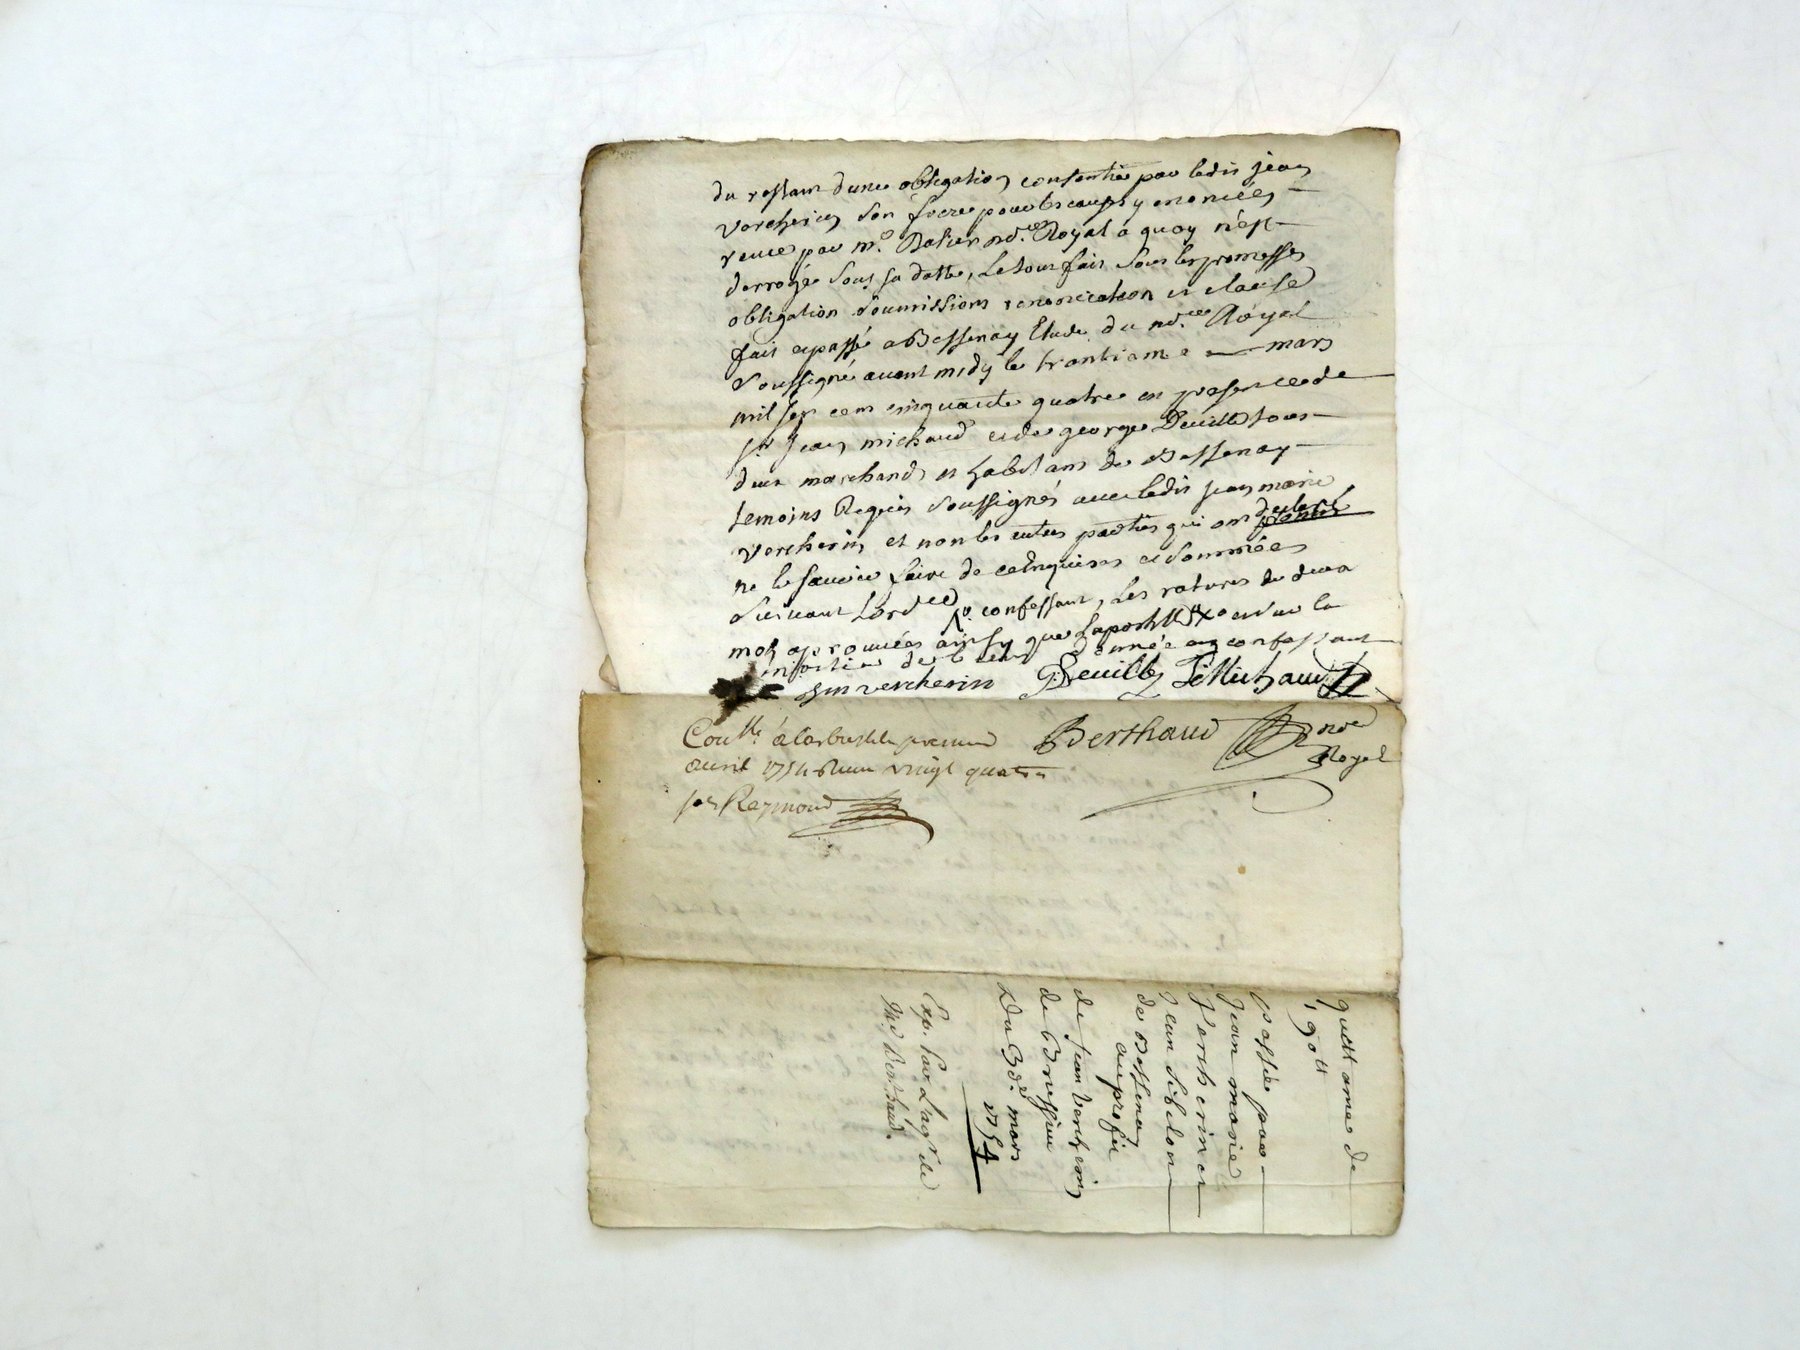 du restant dune obligation consentie par ledit jean
vercherin son frere pour les causes y enoncées
receue par me. Dalier nore. Royal a quoy n'est
derrogé sous sa datte, le tout fait sous les promesses
obligation soumissions renonciation et clause
fait et passé a Bessenay Etude du nore. Royal
soussigné avant midy le trantieme mars
mil sept cent cinquante quatre en presence de
sr. Jean michaud et de george Deville tous
deux marchands et habitans de Bessenay
temoins Requis soussignés avec ledit jean marie
vercherin et non les autres parties qui ont declaré
ne le scavoir faire de ce enquises et sommées
suivant Lordce confessant, Les ratures de deux
mots aprouvées ainsy que Lapostille
confessant
jm vercherin GDeville JeMichaud
Berthaud nore
Royal
Conlle. à Larbresle le premier
avril 1754 Reçu vingt quatre
sols Raymond
quittance de
190ll
passée par
Jean marie
Vercherin et
Jean
de Bessenay
au profit
de Jean Vercherin
de Bressieu
Du 30e. mars
1754
Exp. Pour
Me Berthaud.